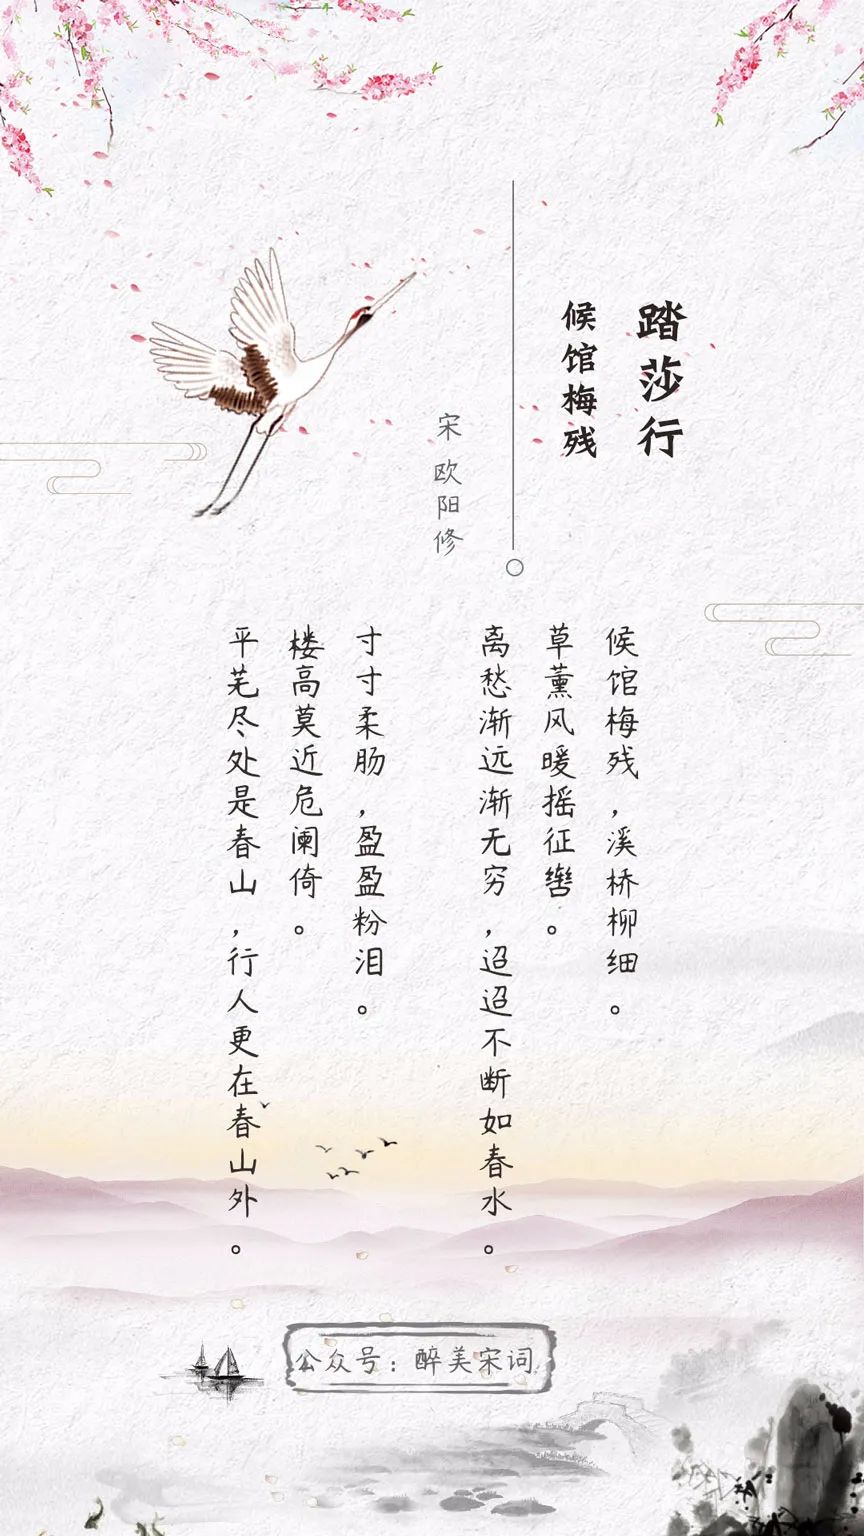 踏莎行
候馆梅残
宋 欧阳修
候馆梅残，溪桥柳细。
草薰风暖摇征辔。
离愁渐远渐无穷，迢迢不断如春水。
寸寸柔肠，盈盈粉泪。
楼高莫近危阑倚。
平芜尽处是春山，行人更在春山外。
公众号：醉美宋词